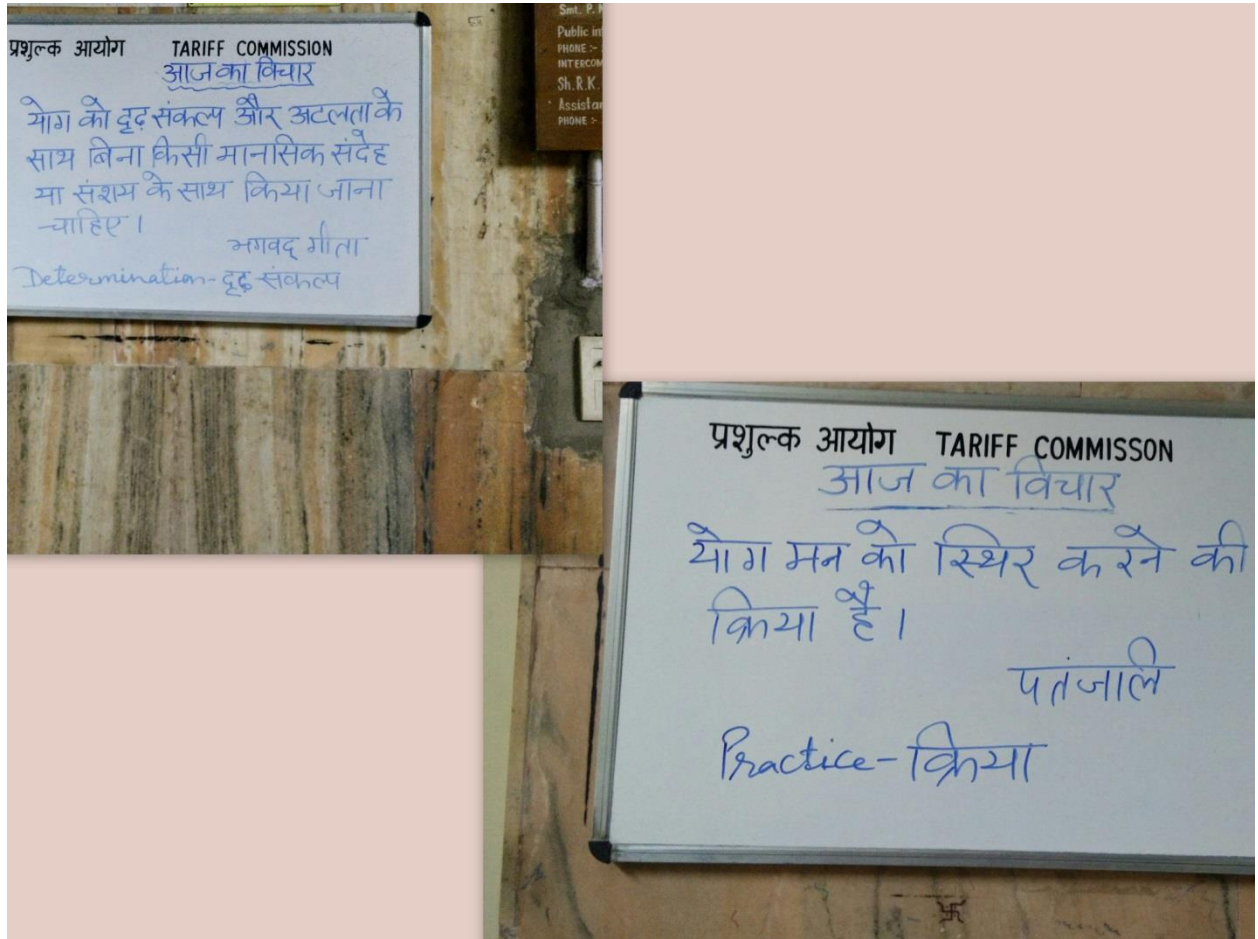 प्रशुल्क आयोग TARIFF COMMISSION
आज का विचार
योग को दृढ़ संकल्प और अटलता के
साथ बिना किसी मानसिक संदेह
या संशय के साथ किया जाना
चाहिए।
भगवद् गीता
Determination - दृढ़ संकल्प
Smt. P.
Public in
PHONE :-
INTERCOM
Sh.R.K.
Assista
PHONE :-
प्रशुल्क आयोग TARIFF COMMISSON
आज का विचार
योग मन को स्थिर करने की
क्रिया है।
पतंजलि
Practice - क्रिया